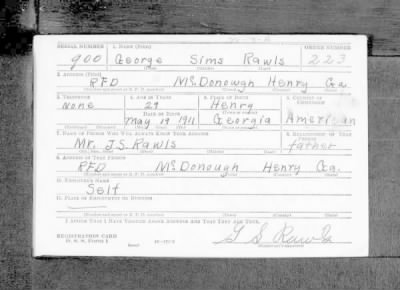 SERIAL NUMBER 1. NAME (Print) ORDER NUMBER
900 George Sims Rawls 223
2. ADDRESS (Print)
RFD McDonough Henry Ga.
3. TELEPHONE 4. AGE IN YEARS 5. PLACE OF BIRTH 6. COUNTRY OF CITIZENSHIP
None 29 Henry
DATE OF BIRTH
May 19 1911 Georgia American
7. NAME OF PERSON WHO WILL ALWAYS KNOW YOUR ADDRESS 8. RELATIONSHIP OF THAT PERSON
Mr. J.S. Rawls father
9. ADDRESS OF THAT PERSON
RFD McDonough Henry Ga.
10. EMPLOYER'S NAME
Self
11. PLACE OF EMPLOYMENT OR BUSINESS
I AFFIRM THAT I HAVE VERIFIED ABOVE ANSWERS AND THAT THEY ARE TRUE.
REGISTRATION CARD
D. S. S. FORM 1
G S Rawls